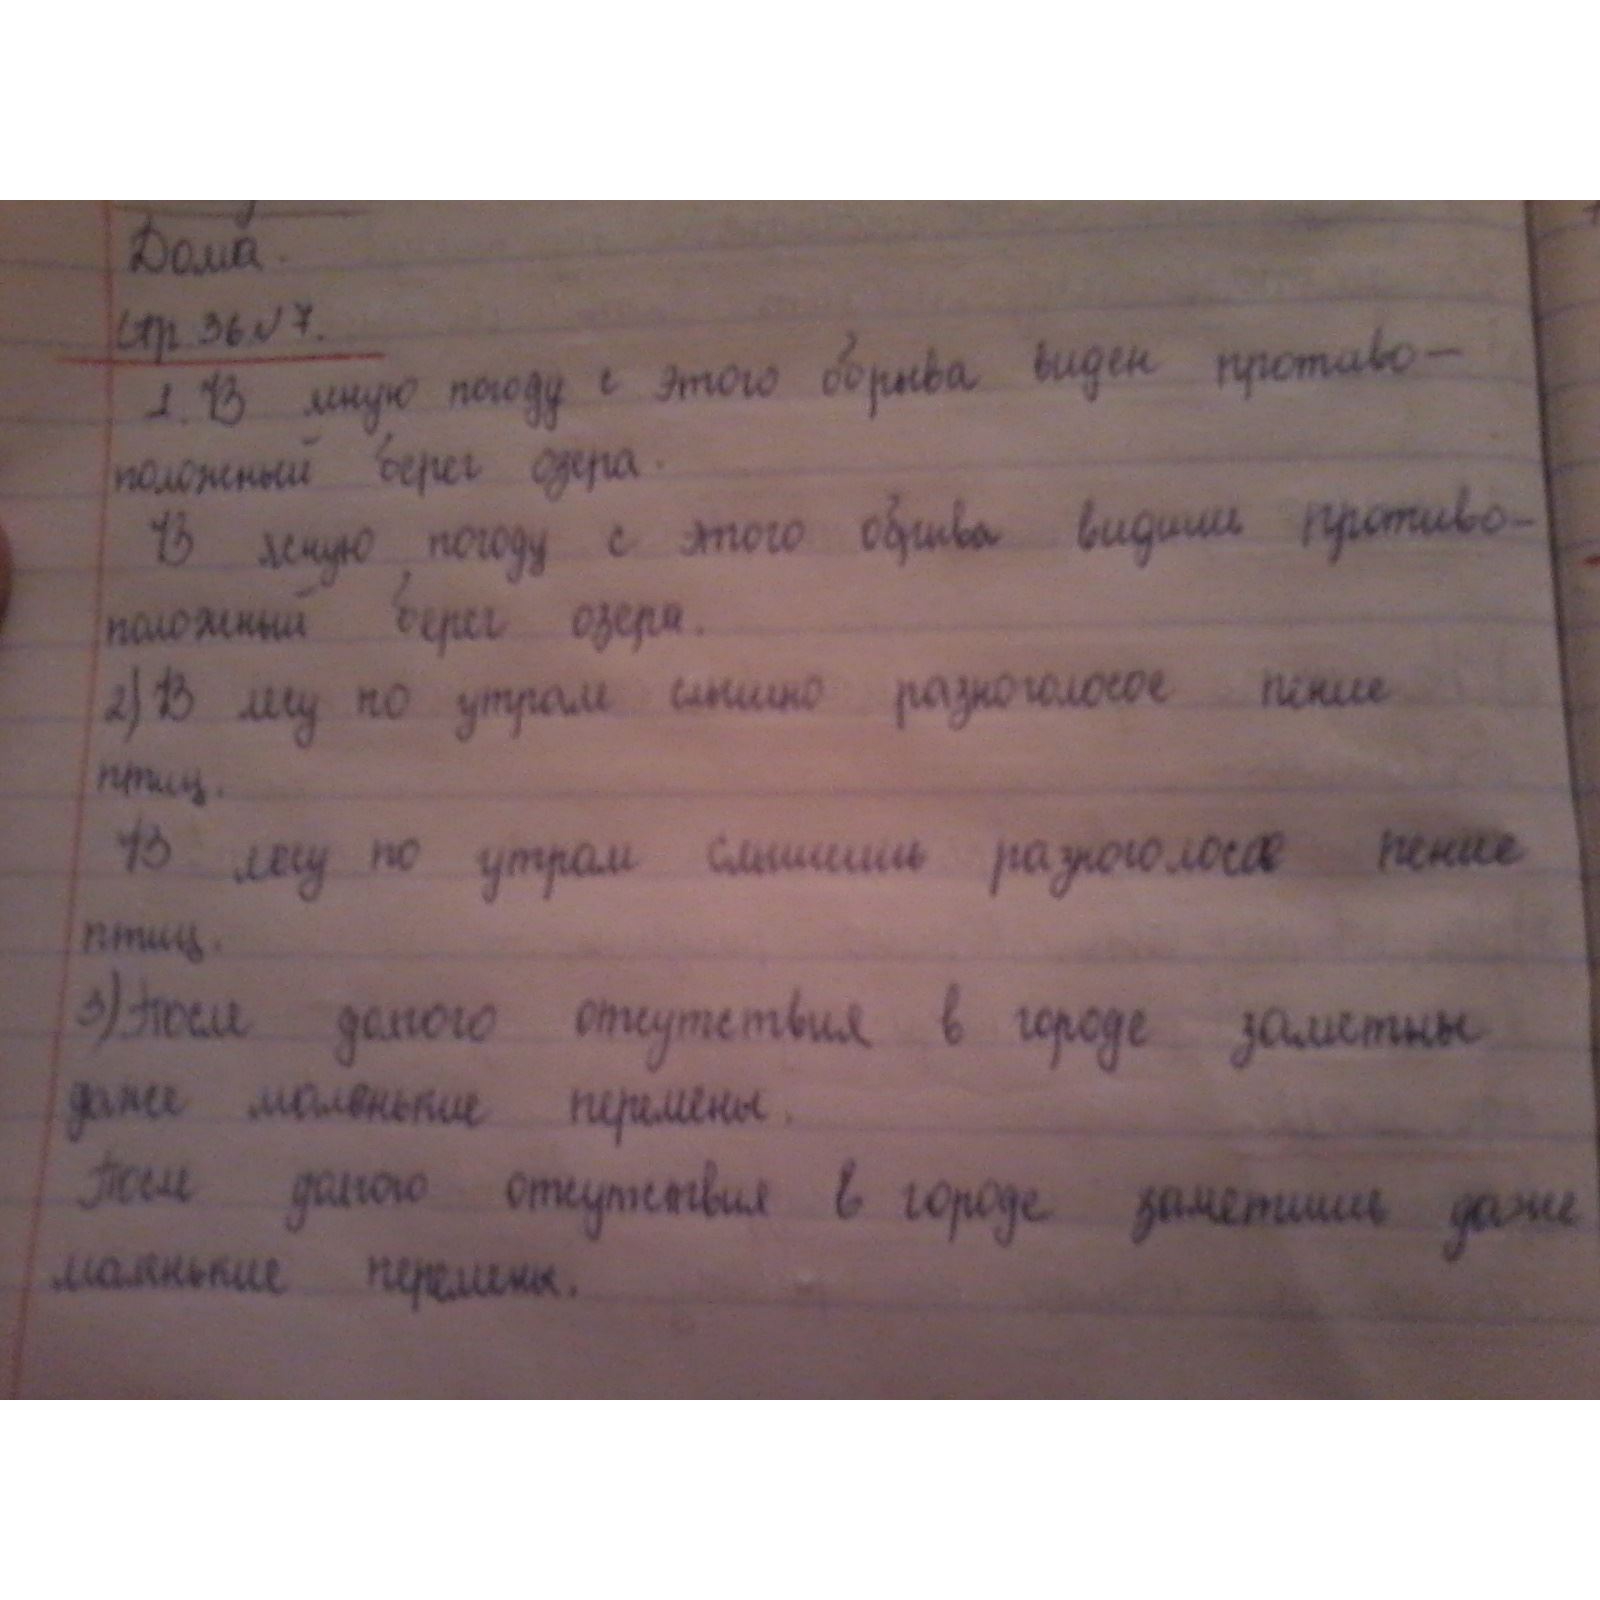 Дома.
Стр. 36 №7.
1. В ясную погоду с этого обрыва виден противо-
положный берег озера.
В ясную погоду с этого обрыва видишь противо-
положный берег озера.
2) В лесу по утрам слышно разноголосое пение
птиц.
В лесу по утрам слышишь разноголосое пение
птиц.
3) После долгого отсутствия в городе заметны
даже маленькие перемены.
После долгого отсутствия в городе заметишь даже
маленькие перемены.